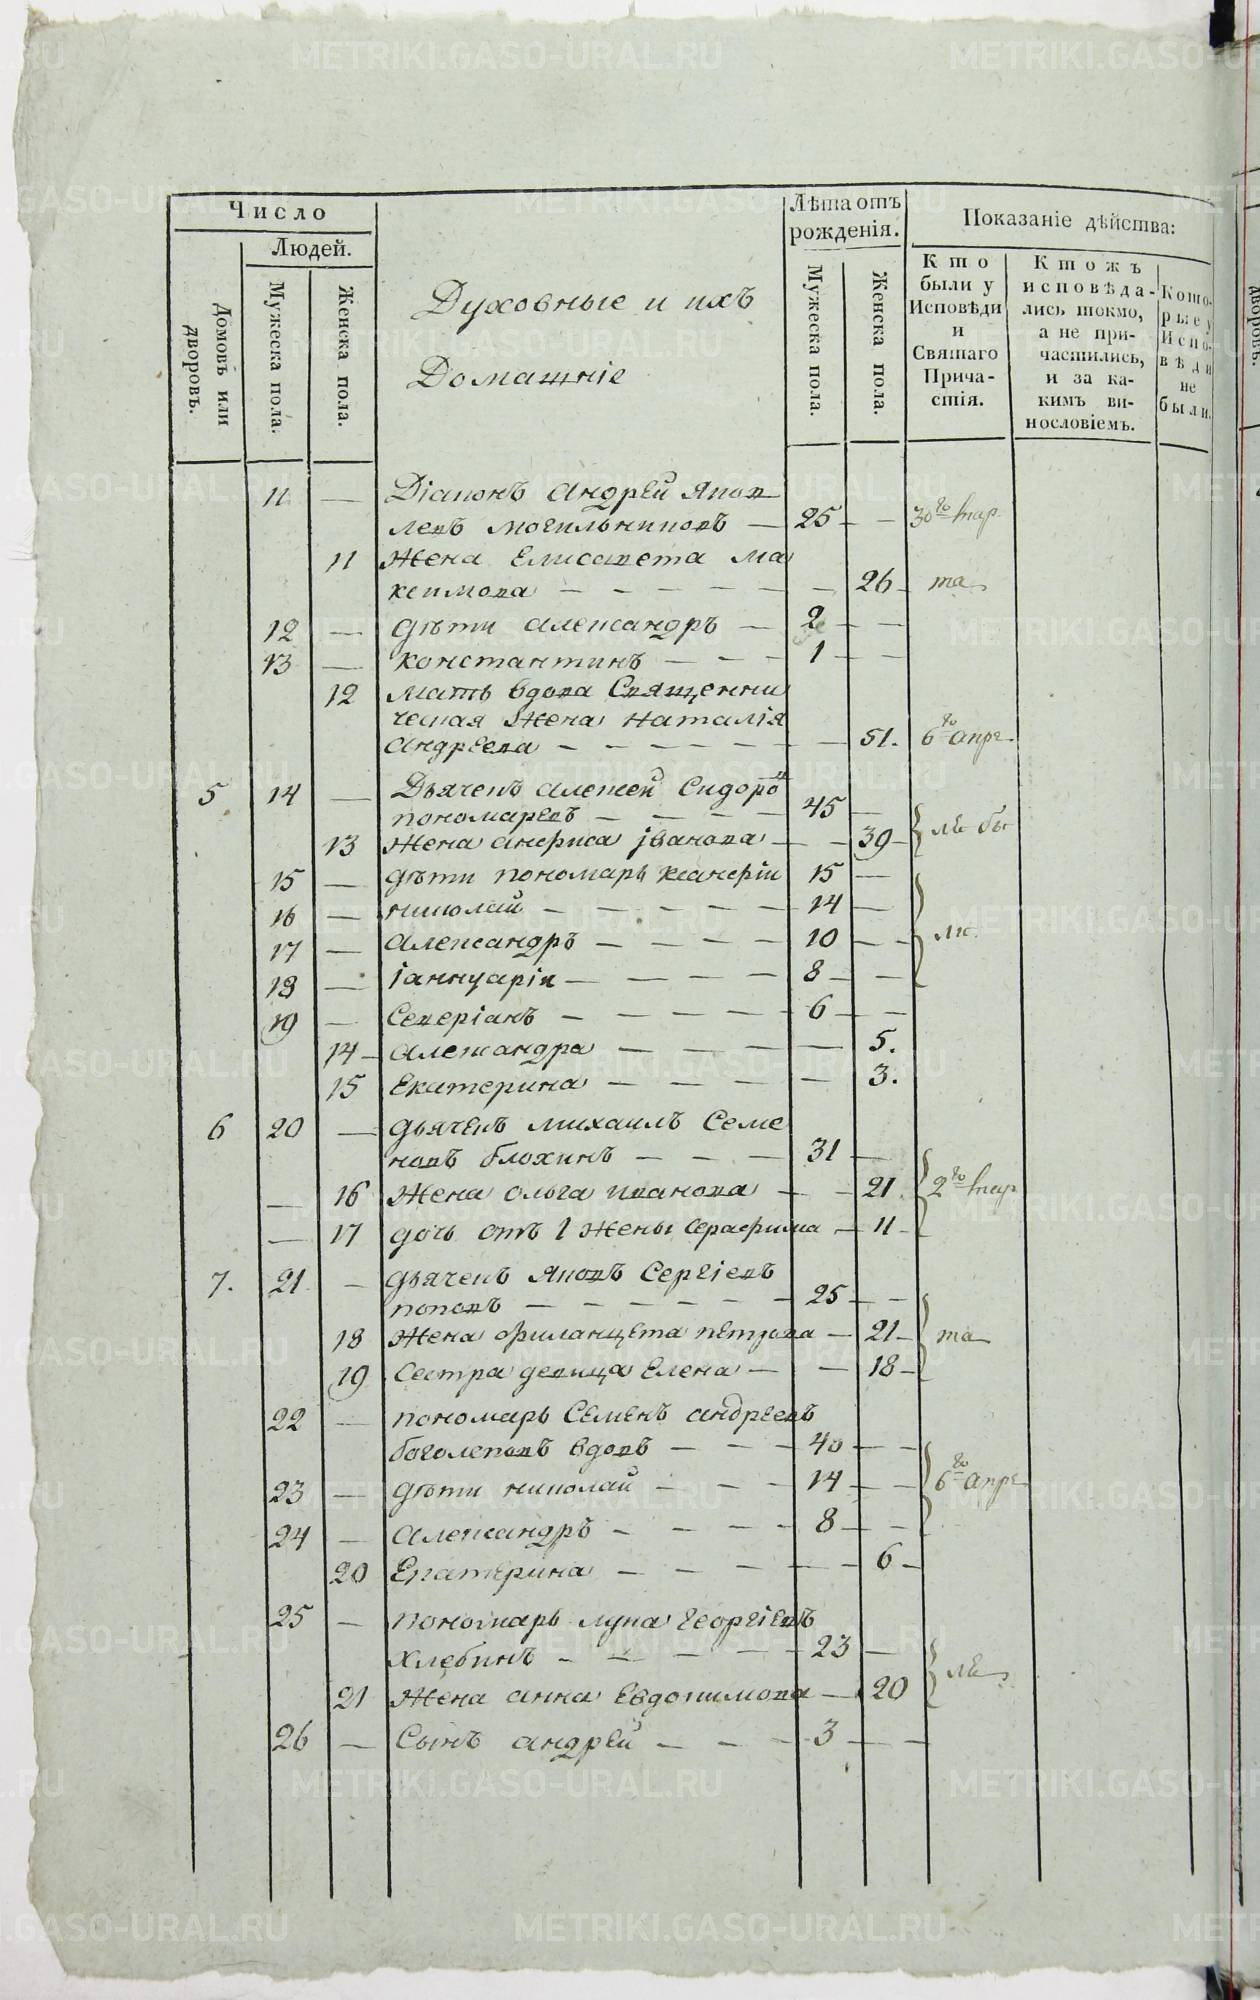 Число
Людей.
Домовъ или дворовъ.
Мужеска пола.
Женска пола.
Духовные и ихъ
Домашніе
Лѣта отъ
рожденія.
Мужеска пола.
Женска пола.
Показаніе дѣйства:
Кто
были у
Исповѣди
и
Святаго
Прича-
стія.
Ктожъ
исповѣда-
лись токмо,
а не при-
частились,
и за ка-
кимъ ви-
нословіемъ.
Кото-
рые у
Испо-
вѣди
не
были.
11 — Діаконъ Андрей Яков
левъ Могильниковъ — 25 — — 30го мар.
11 Жена Елисавета Ма
ксимова — — — — — — — 26 — та
12 — дѣти Александръ — 2 — —
13 — Константинъ — — — 1 — —
12 Мать вдова Священни
ческая Жена Наталія
Андреева — — — — — — — 51. 6го апре
5 14 — Дьячекъ Алексей Сидоро
Пономаревъ — — — — 45 —
13 Жена Анфиса Іванова — — — 39 —
15 — дѣти пономарь Ксанфіи 15 —
16 — Николай — — — — — — 14 —
17 — Александръ — — — — 10 — —
18 — Іаннуаріи — — — — 8 — —
19 — Северіанъ — — — — — 6 — —
14 — Александра — — — — 5.
15 Екатерина — — — — 3.
6 20 — дьячекъ Михаилъ Семе
новъ Блохинъ — — — 31 —
— 16 Жена Ольга Иванова — — 21. 2го мар
— 17 дочь отъ 1 Жены Серафима — 11 —
7. 21 — дьячекъ Яковъ Сергіевъ
Поповъ — — — — — — 25 — —
18 Жена Филанцета Петрова — 21 — та
19 Сестра девица Елена — — 18 —
22 — пономарь Семенъ Андреевъ
Боголеповъ вдовъ — — — 40 — —
23 — дѣти Николай — — — 14 — — 6го апре
24 — Александръ — — — — 8 — —
20 Екатерина — — — — — 6 —
25 — пономарь Лука Георгіевъ
Хлебинъ — — — — — 23 —
21 Жена Анна Евдокимова — 20
26 — Сынъ Андрей — — — 3 — —
METRIKI.GASO-URAL.RU